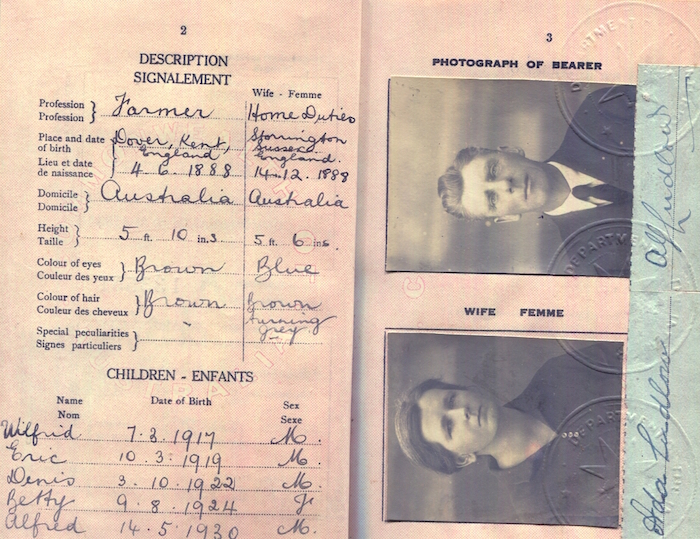 2
DESCRIPTION
SIGNALEMENT
Wife - Femme
Profession
Profession } Farmer Home Duties
Place and date
of birth
Lieu et date
de naissance } Dover, Kent, England 4.6.1888
Storrington Sussex England. 14.12.1888
Domicile
Domicile } Australia Australia
Height
Taille } 5 ft. 10 in.s 5 ft. 6 ins.
Colour of eyes
Couleur des yeux } Brown Blue
Colour of hair
Couleur des cheveux } Brown Brown turning grey.
Special peculiarities
Signes particuliers } -
CHILDREN - ENFANTS
Name Date of Birth Sex
Nom Sexe
Wilfrid 7.3.1917 M.
Eric 10.3.1919 M.
Denis 3.10.1922 M.
Betty 9.8.1924 F.
Alfred 14.5.1930 M.
3
PHOTOGRAPH OF BEARER
WIFE FEMME
Alf Ludlow
Ada Ludlow
DEPARTMENT